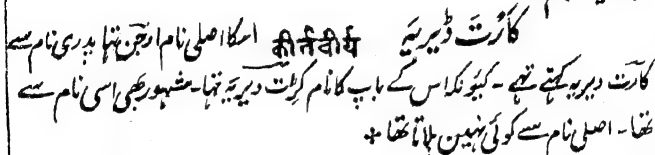 کارُت دیریہ कीर्तवीर्य اسکا اصلی نام ارجن تہا پدری نام سے
کارت دیریہ کہتے تہے ۔ کیونکہ اس کے باپ کا نام کرِت دیریہ تہا ۔ مشہور بھی اسی نام سے
تھا ۔ اصلی نام سے کوئی نہین بلاتا تھا